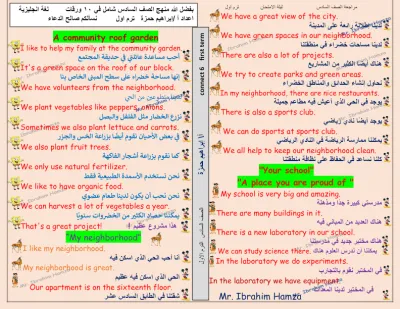 بفضل الله منهج الصف السادس شامل في ١٠ ورقات لغة انجليزية
اعداد ا/ابراهيم حمزة ترم اول نسألكم صالح الدعاء
A community roof garden
I like to help my family at the community garden.
أحب مساعدة عائلتي في حديقة المجتمع
It's a green space on the roof of our block.
إنها مساحة خضراء على سطح المبنى الخاص بنا
We have volunteers from the neighborhood.
لدينا متطوعين من الحي
We plant vegetables like peppers, onions.
نزرع الخضار مثل الفلفل والبصل
Sometimes we also plant lettuce and carrots.
في بعض الأحيان نقوم أيضا بزراعة الخس والجزر
We also plant fruit trees.
كما نقوم بزراعة أشجار الفاكهة
We only use natural fertilizer.
نحن نستخدم الأسمدة الطبيعية فقط
We like to have organic food.
نحن نحب أن يكون لدينا طعام عضوي
We can harvest a lot of vegetables a year.
يمكننا حصاد الكثير من الخضروات سنويا
That's a great project!
هذا مشروع عظيم
"My neighborhood"
I like my neighborhood.
أنا أحب الحي الذي اسكن فيه
My neighborhood is great.
الحي الذي اسكن فيه عظيم
Our apartment on is the sixteenth floor.
شقتنا في الطابق السادس عشر
connect 6 first term
ا/ ابراهيم حمزة
الصف السادس الترم الاول
مراجعة الصف السادس ليلة الامتحان ترم اول
We have a great view of the city.
لدينا إطلالة رائعة على المدينة
We have green spaces in our neighborhood.
لدينا مساحات خضراء في منطقتنا
There are also a lot of projects.
هناك أيضا الكثير من المشاريع
We try to create parks and green areas.
نحاول انشاء الحدائق والمناطق الخضراء
In my neighborhood, there are nice restaurants.
يوجد في الحي الذي أعيش فيه مطاعم جميلة
There is also a sports club.
يوجد أيضا نادي رياضي
We can do sports at sports club.
يمكننا ممارسة الرياضة في النادي الرياضي
We all help to keep our neighborhood clean.
كلنا نساعد في الحفاظ على نظافة منطقتنا
"Your school"
"A place you are proud of "
My school is very big and amazing.
مدرستي كبيرة جدا ومذهلة
There are many buildings in it.
هناك العديد من المباني فيه
There is a new laboratory in our school.
هناك مختبر جديد في مدرستنا
We can study science there.
يمكننا ان ندرس العلوم هناك
In the laboratory we do experiments.
في المختبر نقوم بالتجارب
In the laboratory we have equipment.
في المختبر لدينا المعدات
Mr. Ibrahim Hamza